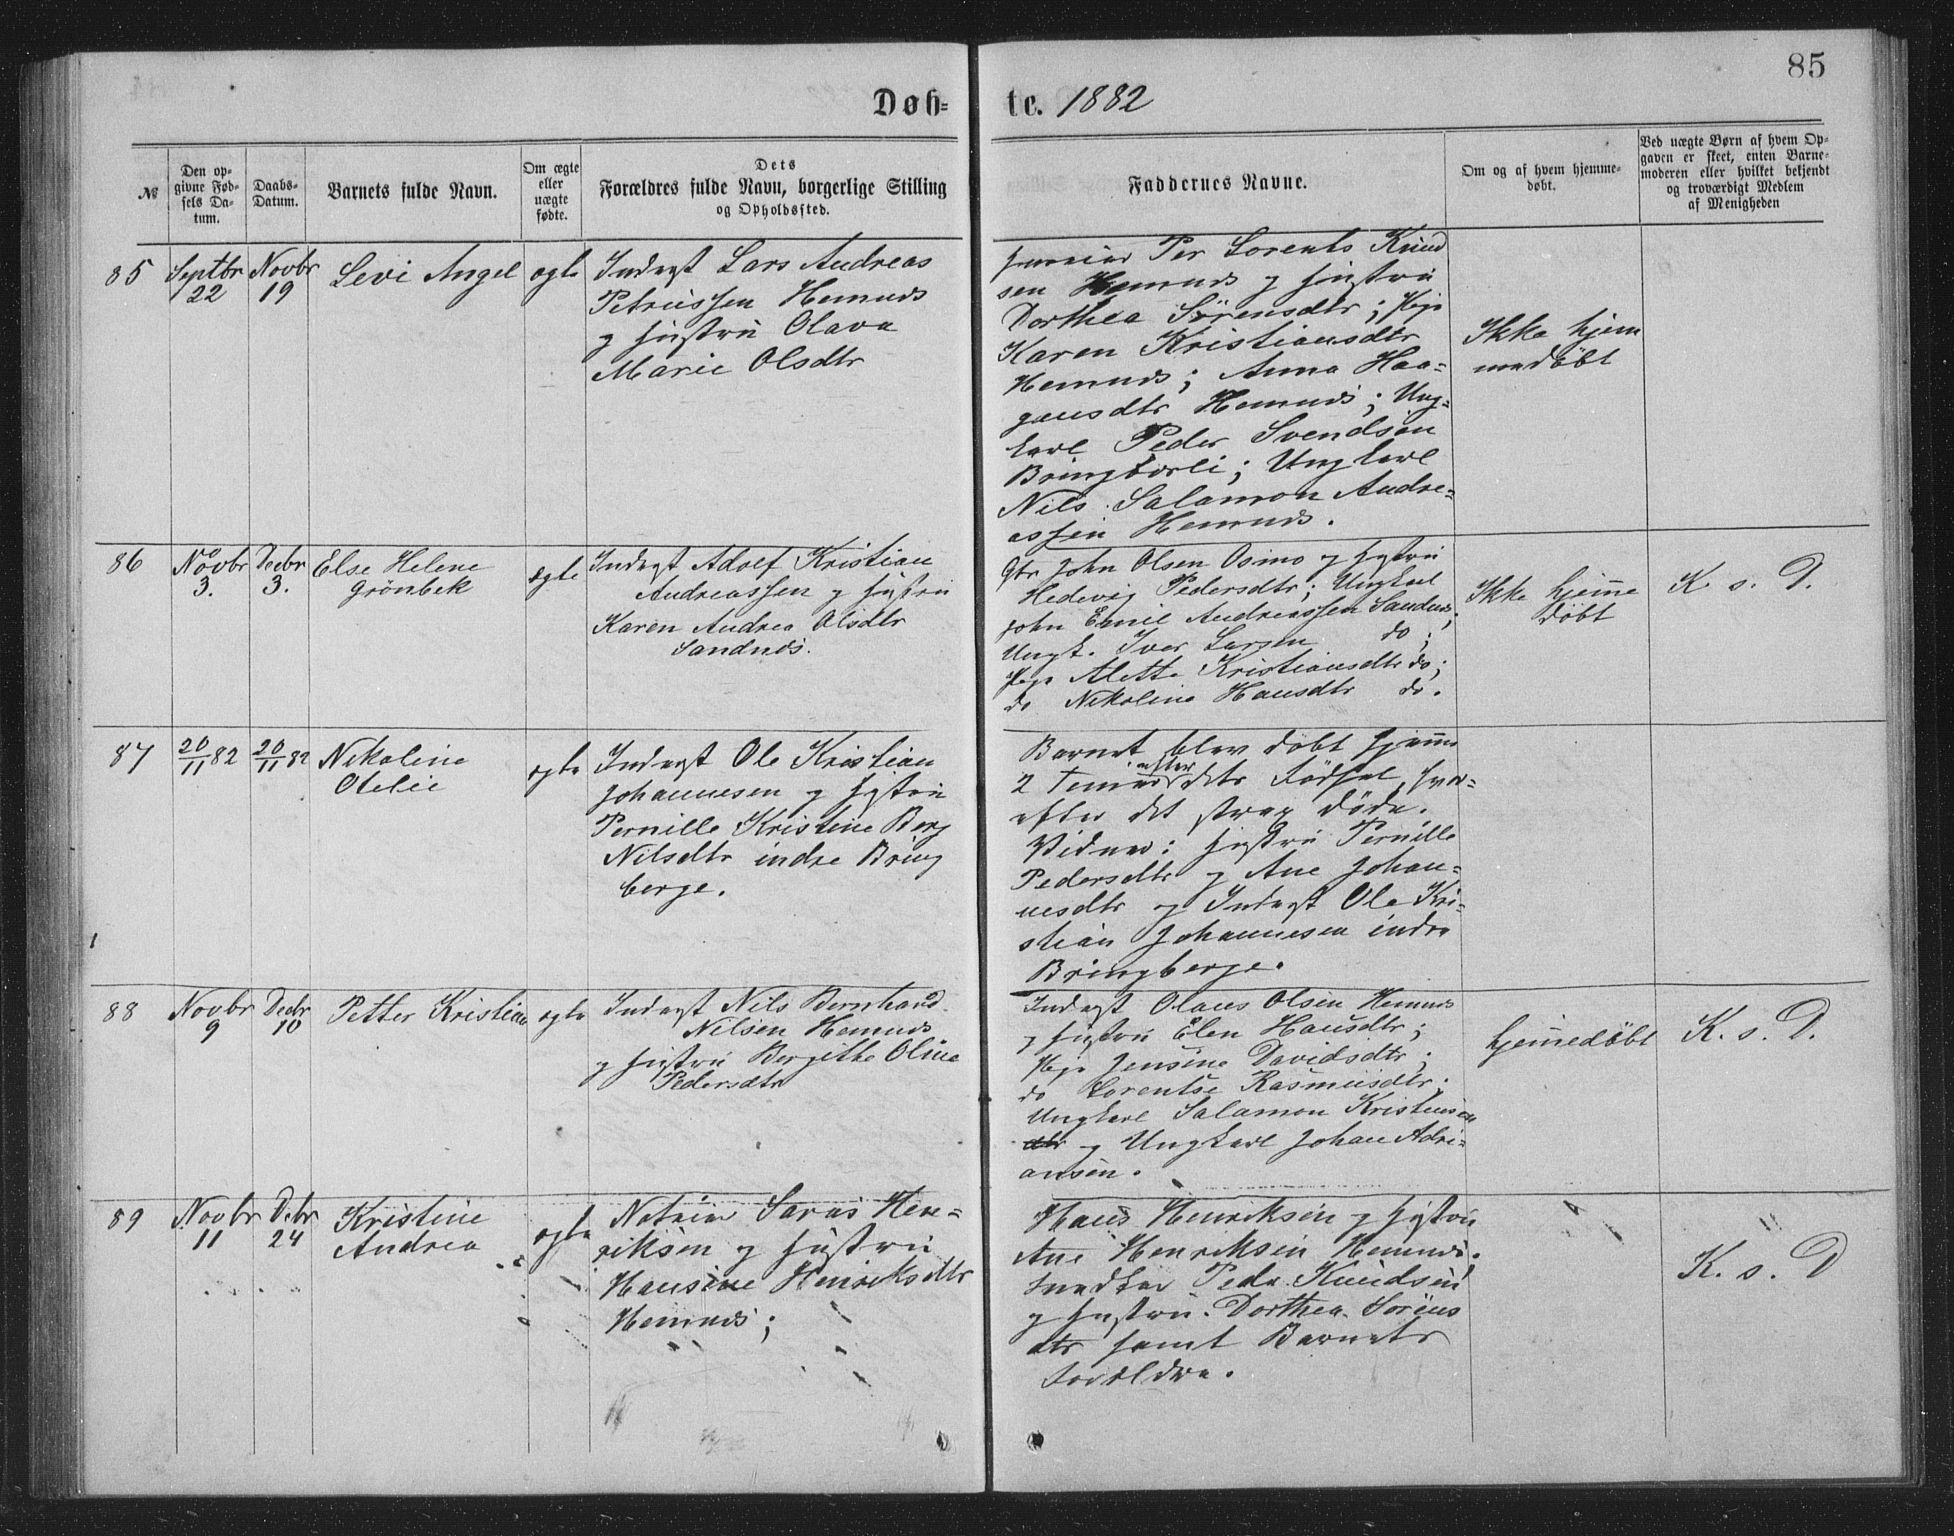 85
Døb-
te. 1882
№
Den op-
givne Fød-
sels Da-
tum.
Daabs-
Datum.
Barnets fulde Navn.
Om ægte
eller
uægte
fødte.
Dets
Forældres fulde Navn, borgerlige Stilling
og Opholdssted.
Faddernes Navne.
Om og af hvem hjemme-
døbt.
Ved uægte Børn af hvem Op-
gaven er skeet, enten Barne-
moderen eller hvilket bekjendt
og troværdigt Medlem
af Menigheden
85
Septbr
22
Novbr
19
Levi Angel
ægte
Inderst Lars Andreas
Petrussen Hemnes
og hustru Olava
Marie Olsdtr
Per Lorents Knud
sen Hemnes og hustru
Dorthea Sörensdtr; Pige
Karen Kristiansdtr
Hemnes; Anna Haa-
gensdtr Hemnes; Ung-
karl Peder Svendsen
Bringborli; Ungkarl
Nils Salamon Andre-
assen Hemnes.
Ikke hjem
medøbt
86
Novbr
3.
Decbr
3.
Else Helene
Grönbek
ægte
Inderst Adolf Kristian
Andreassen og hustru
Karen Andrea Olsdtr
Sandnes.
Gbr John Olsen Osmo og hustru
Hedevig Pedersdtr; Ungkarl
John Emil Andreassen Sandnes;
Ungk. Iver Larsen do;
Pige Alette Kristiansdtr do;
do Nikoline Hansdtr do.
Ikke hjem̅e
döbt
K. s. D.
87
20/11 82
20/11 82
Nikoline
Otelie
ægte
Inderst Ole Kristian
Johannesen og hustru
Pernille Kristine Berg
Nilsdtr indre Bring
berge.
Barnet blev döbt hjem̅e
2 Timer efter dets Födsel, hvor-
efter det strax döde.
Vidner: hustru Pernille
Pedersdtr og Ane Johan-
nesdtr og Inderst Ole Kri-
stian Johannesen indre
Bringberge.
88
Novbr
9
Decbr
10
Petter Kristian
ægte
Inderst Nils Bernhard
Nilsen Hemnes
og hustru Bergithe Oline
Pedersdtr
Inderst Olaus Olsen Hemnes
og hustru Elen Hansdtr;
Pige Jensine Davidsdtr;
do Lorentse Rasmusdtr;
Ungkarl Salamon Kristensen
dtr og Ungkarl Johan Adri-
ansen.
hjem̅edöbt
K. s. D.
89
Novbr
11
Debr
24
Kristine
Andrea
ægte
Henriksen og hustru
Hansine Henriksdtr
Hemnes;
Hans Henriksen og hustru
Ane Henriksen Hemnes;
Peder Knudsen
og hustru Dorthea Sörens
dtr samt Barnets
Forældre.
K. s. D